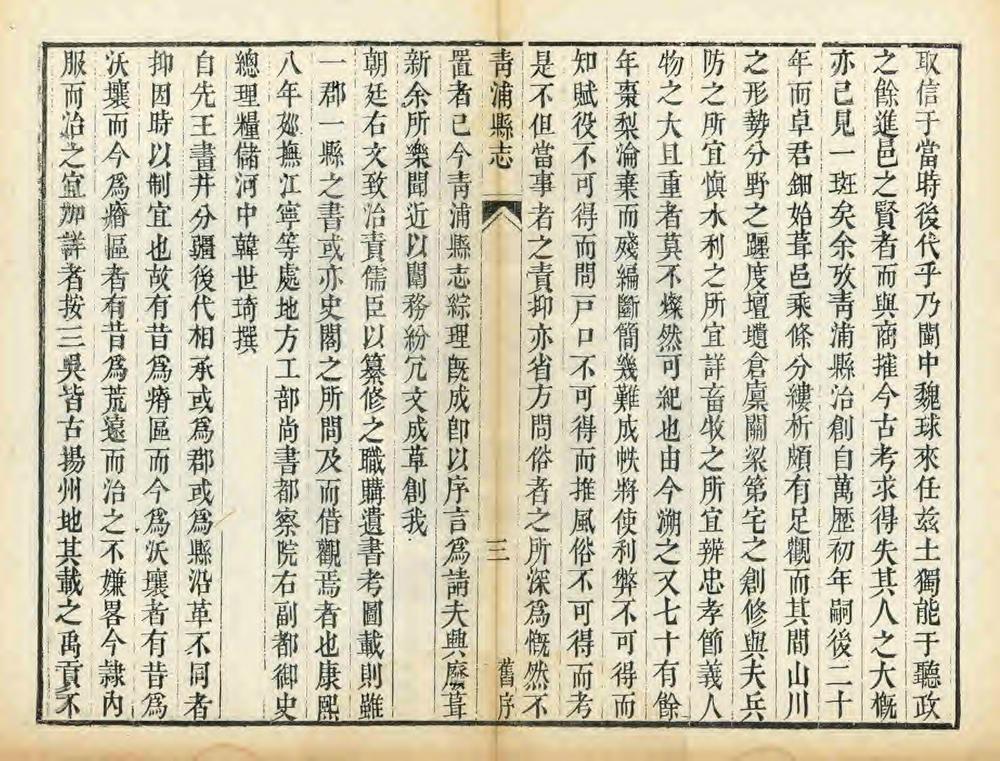 取信于當時後代乎乃閩中魏球來任兹土獨能于聽政
之餘進邑之賢者而與商搉今古考求得失其人之大概
亦已見一斑矣余攷靑浦縣治創自萬歷初年嗣後二十
年而卓君鈿始葺邑乘條分縷析頗有足觀而其間山川
之形勢分野之躔度壇壝倉廪關梁第宅之創修與夫兵
防之所宜慎水利之所宜詳畜牧之所宜辨忠孝節義人
物之大且重者莫不燦然可紀也由今溯之又七十有餘
年棗梨淪棄而殘編斷簡幾難成帙將使利弊不可得而
知賦役不可得而問戸口不可得而推風俗不可得而考
是不但當事者之責抑亦省方問俗者之所深爲慨然不
靑浦縣志 三 舊序
置者已今靑浦縣志綜理旣成卽以序言爲請夫興廢葺
新余所樂聞近以閫務紛冗文成草創我
朝廷右文致治責儒臣以纂修之職購遺書考圖載則雖
一郡一縣之書或亦史閣之所問及而借觀焉者也康熙
八年廵撫江寧等處地方工部尚書都察院右副都御史
總理糧儲河中韓世琦撰
自先王畫井分疆後代相承或爲郡或爲縣沿革不同者
抑因時以制宜也故有昔爲瘠區而今爲沃壤者有昔爲
沃壤而今爲瘠區者有昔爲荒遠而治之不嫌畧今隷内
服而治之宜加詳者按三吳皆古揚州地其載之禹貢不